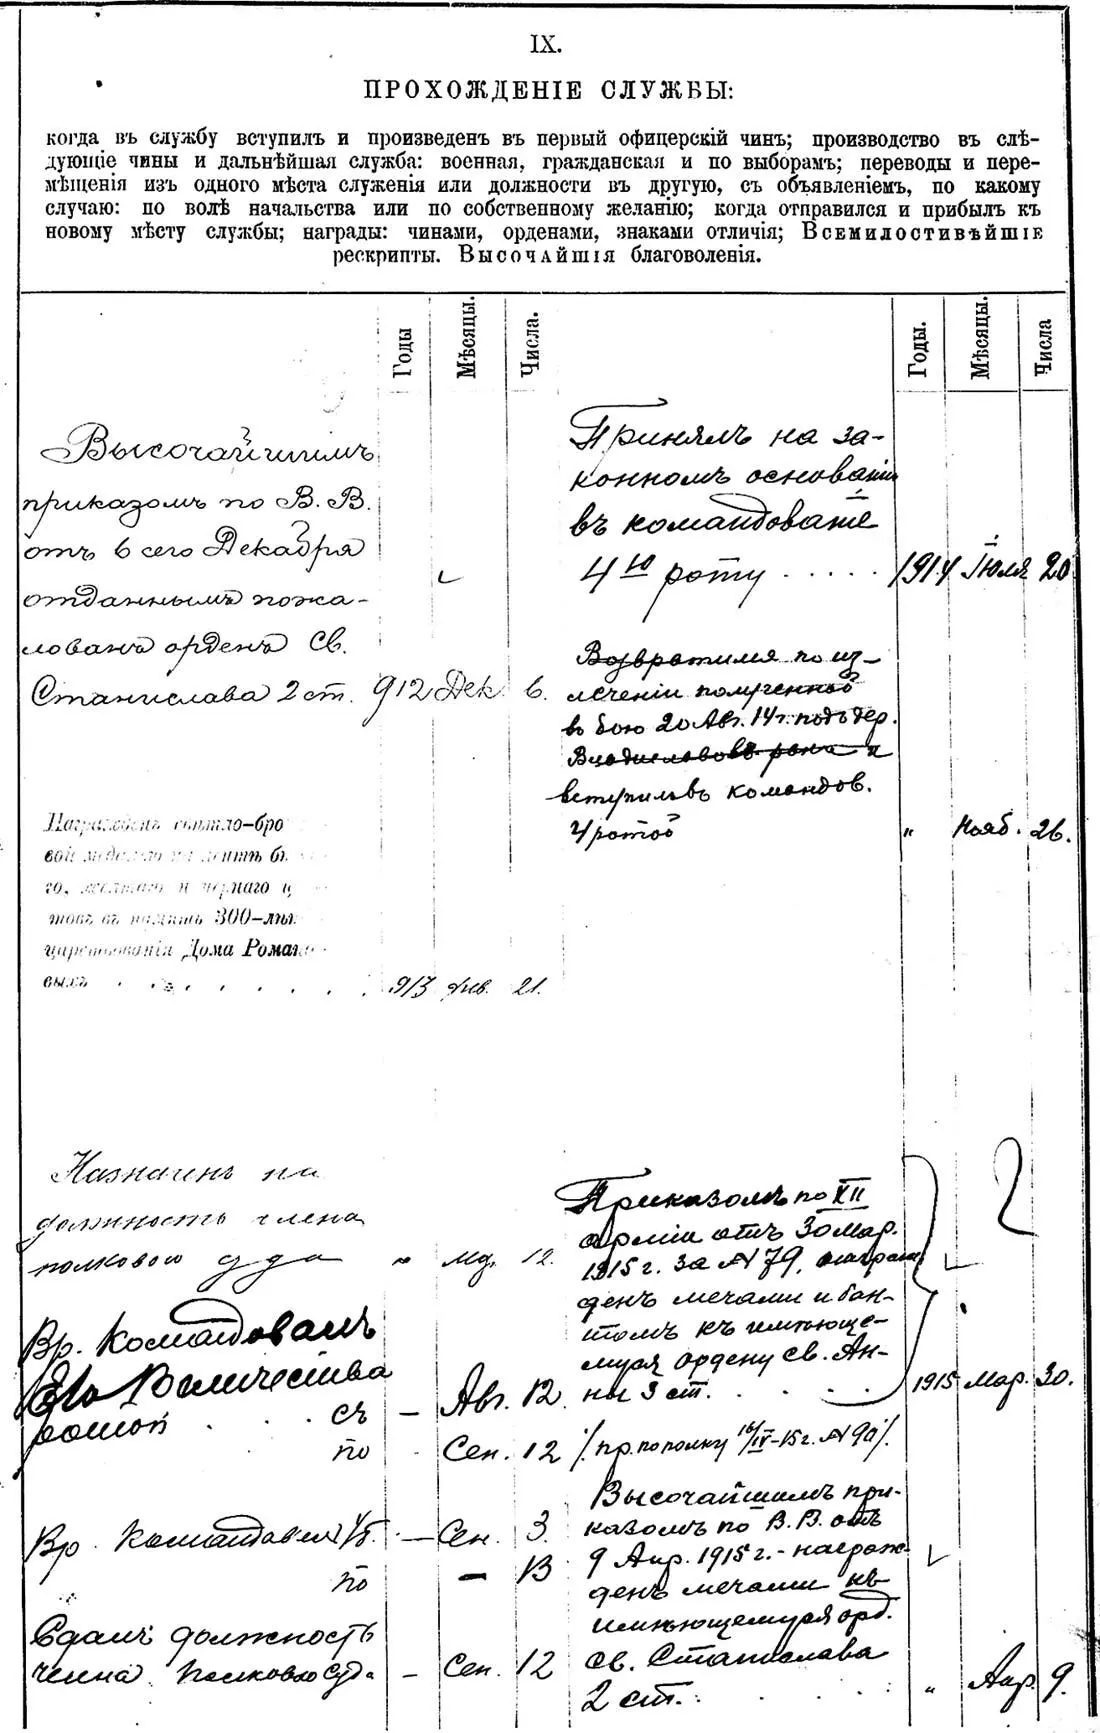 IX.
ПРОХОЖДЕНІЕ СЛУЖБЫ:
когда въ службу вступилъ и произведенъ въ первый офицерскій чинъ; производство въ слѣ-
дующіе чины и дальнѣйшая служба: военная, гражданская и по выборамъ; переводы и пере-
мѣщенія изъ одного мѣста служенія или должности въ другую, съ объявленіемъ, по какому
случаю: по волѣ начальства или по собственному желанію; когда отправился и прибылъ къ
новому мѣсту службы; награды: чинами, орденами, знаками отличія; Всемилостивѣйшіе
рескрипты. Высочайшія благоволенія.
Годы
Мѣсяцы.
Числа.
Высочайшимъ
приказомъ по В. В.
отъ 6 сего Декабря
отданнымъ пожа-
лованъ орденъ Св.
Станислава 2 ст. 912 Дек. 6.
Награжденъ свѣтло-бро
вой медалью на лентѣ бѣ
го, желтаго и чернаго ц
товъ въ память 300-лѣт
царствованія Дома Романо
выхъ 913 Янв. 21.
Назначенъ на
должность члена
полковой суда " 12.
Вр. командовалъ
Его Величества
ротой съ — Авг. 12
по Сен. 12
Вр. Командовал — Сен. 3.
по — 13
Сдалъ должность
члена полковаго суда — Сен. 12
Годы.
Мѣсяцы.
Числа
Принялъ на за-
конномъ основаніи
въ командованіе
4ю роту 1914 Іюля 20
Возвратился по из-
леченіи полученной
въ бою 20 Авг. 14 г. подъ дер.
Владиславовъ раны и
вступилъ въ командов.
4 ротой " Нояб. 26.
Приказомъ по XII
арміи отъ 30 Мар.
1915 г. за № 79, награж
денъ мечами и бан-
томъ къ имѣюще-
муся ордену св. Ан-
ны 3 ст. 1915 Мар. 30.
/. пр. по полку 16/IV-15 г. № 90 /.
Высочайшимъ при-
казомъ по В. В. отъ
9 Апр. 1915 г. - награж-
денъ мечами къ
имѣющемуся орд.
св. Станислава
2 ст. " Апр. 9.